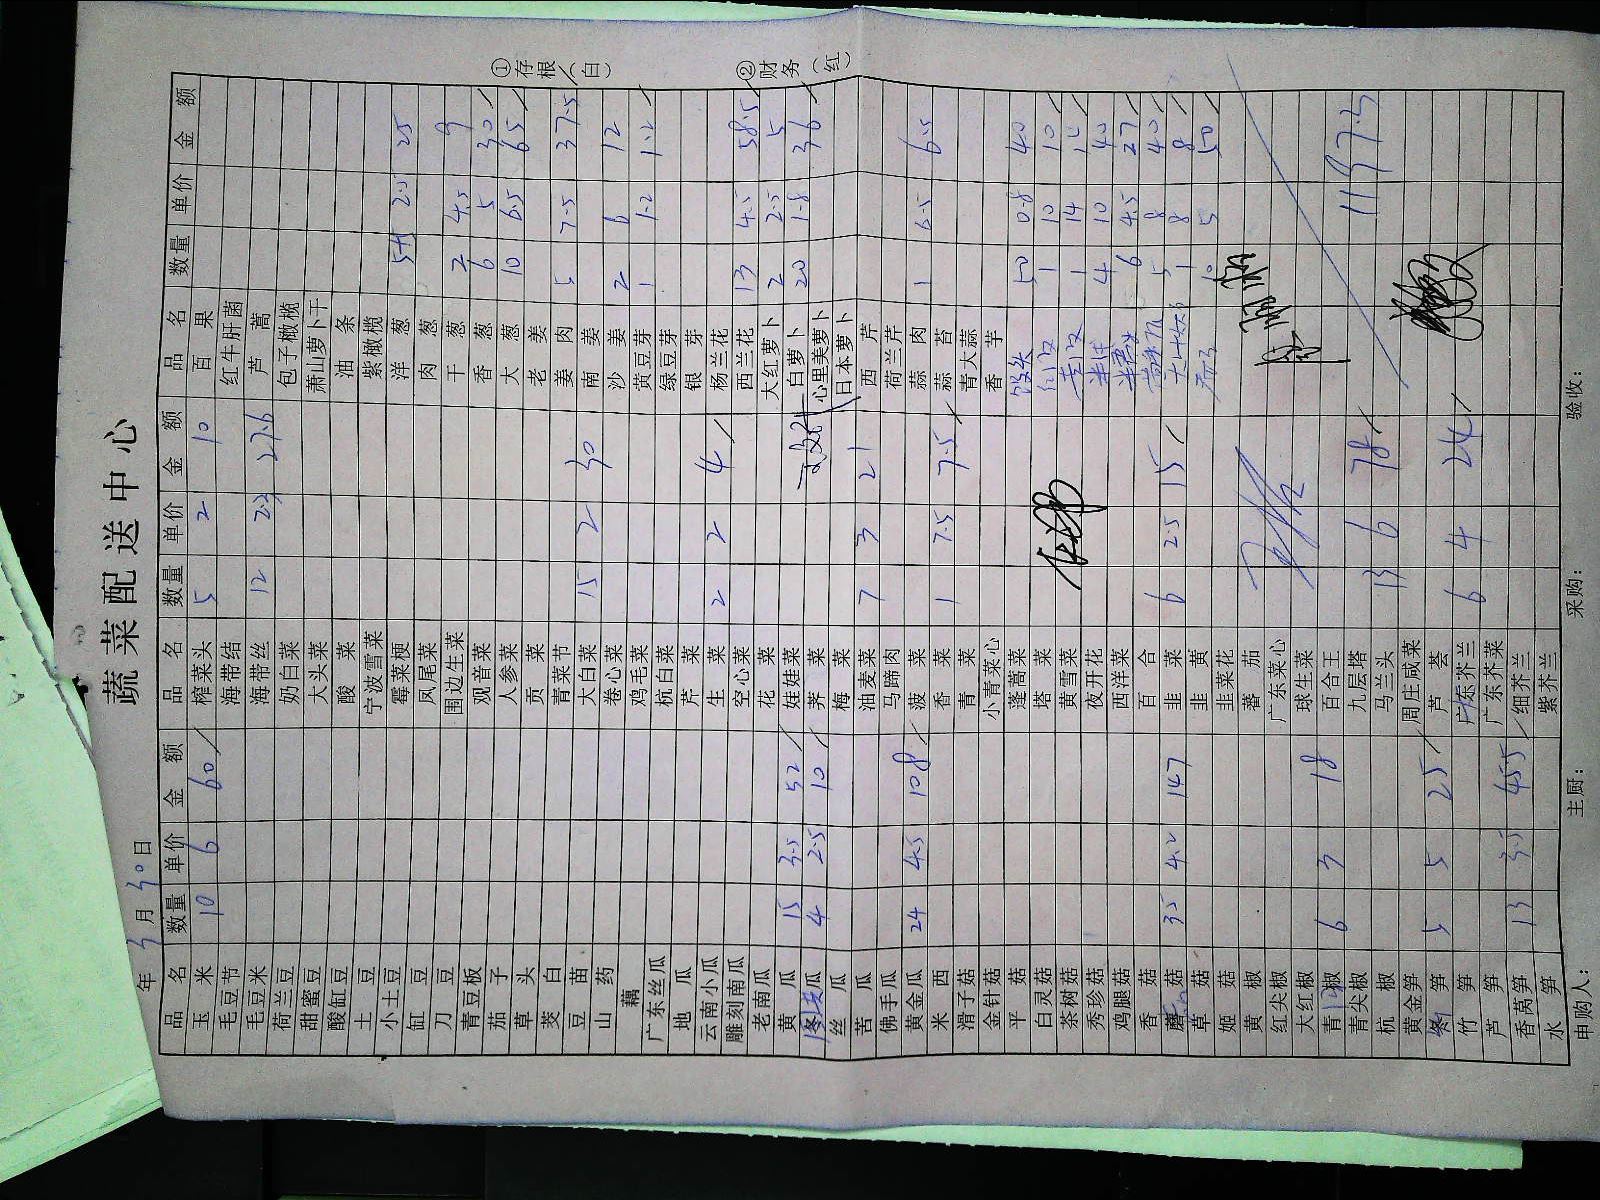 蔬菜配送中心
年 3 月 30 日
品名 数量 单价 金额 品名 数量 单价 金额 品名 数量 单价 金额
玉米 10 6 60 榨菜头 5 2 10 百果
毛豆节 海带结 红牛肝菌
毛豆米 海带丝 12 2.3 27.6 芦蒿
荷兰豆 奶白菜 包子橄榄
甜蜜豆 大头菜 萧山萝卜干
酸缸豆 酸菜 油条
土豆 宁波雪菜 紫橄榄
小土豆 霉菜梗 洋葱 5+5 2.5 25
缸豆 凤尾菜 肉葱
刀豆 围边生菜 干葱 2 4.5 9
青豆板 观音菜 香葱 6 5 30
茄子 人参菜 大葱 10 6.5 65
草头 贡菜 老姜
茭白 青菜节 姜肉 5 7.5 37.5
豆苗 大白菜 15 2 30 南姜
山药 卷心菜 沙姜 2 6 12
藕 鸡毛菜 黄豆芽 1 1.2 1.2
广东丝瓜 杭白菜 绿豆芽
地瓜 芹菜 银芽
云南小瓜 生菜 2 2 4 杨兰花
雕刻南瓜 空心菜 西兰花 13 4.5 58.5
老南瓜 花菜 大红萝卜 2 2.5 5
黄瓜 15 3.5 52 娃娃菜 白萝卜 20 1.8 36
冬瓜 4 2.5 10 荠菜 心里美萝卜
丝瓜 梅菜 日本萝卜
苦瓜 油麦菜 7 3 21 西芹
佛手瓜 马蹄肉 荷兰芹
黄金瓜 24 4.5 108 菠菜 蒜肉 1 6.5 6.5
米西 香菜 1 7.5 7.5 蒜苔
滑子菇 青菜 青大蒜
金针菇 小青菜心 香芋
平菇 蓬蒿菜 馒头 50 0.8 40
白灵菇 塔菜 1 10 10
茶树菇 黄雪菜 1 14 14
秀珍菇 夜开花 4 10 40
鸡腿菇 西洋菜 6 4.5 27
香菇 百合 5 8 40
蘑菇 35 4.2 147 韭菜 6 2.5 15 1 8 8
草菇 韭黄 10 5 50
姬菇 韭菜花
黄椒 蕃茄
红尖椒 广东菜心
大红椒 球生菜
青椒 6 3 18 百合王
青尖椒 九层塔 1197.3
杭椒 马兰头 13 6 78
黄金笋 周庄咸菜
冬笋 5 5 25 芦荟
竹笋 广东芥兰 6 4 24
芦笋 广东芥菜
香莴笋 13 3.5 45.5 细芥兰
水笋 紫芥兰
申购人： 主厨： 采购： 验收：
①存根（白）
②财务（红）